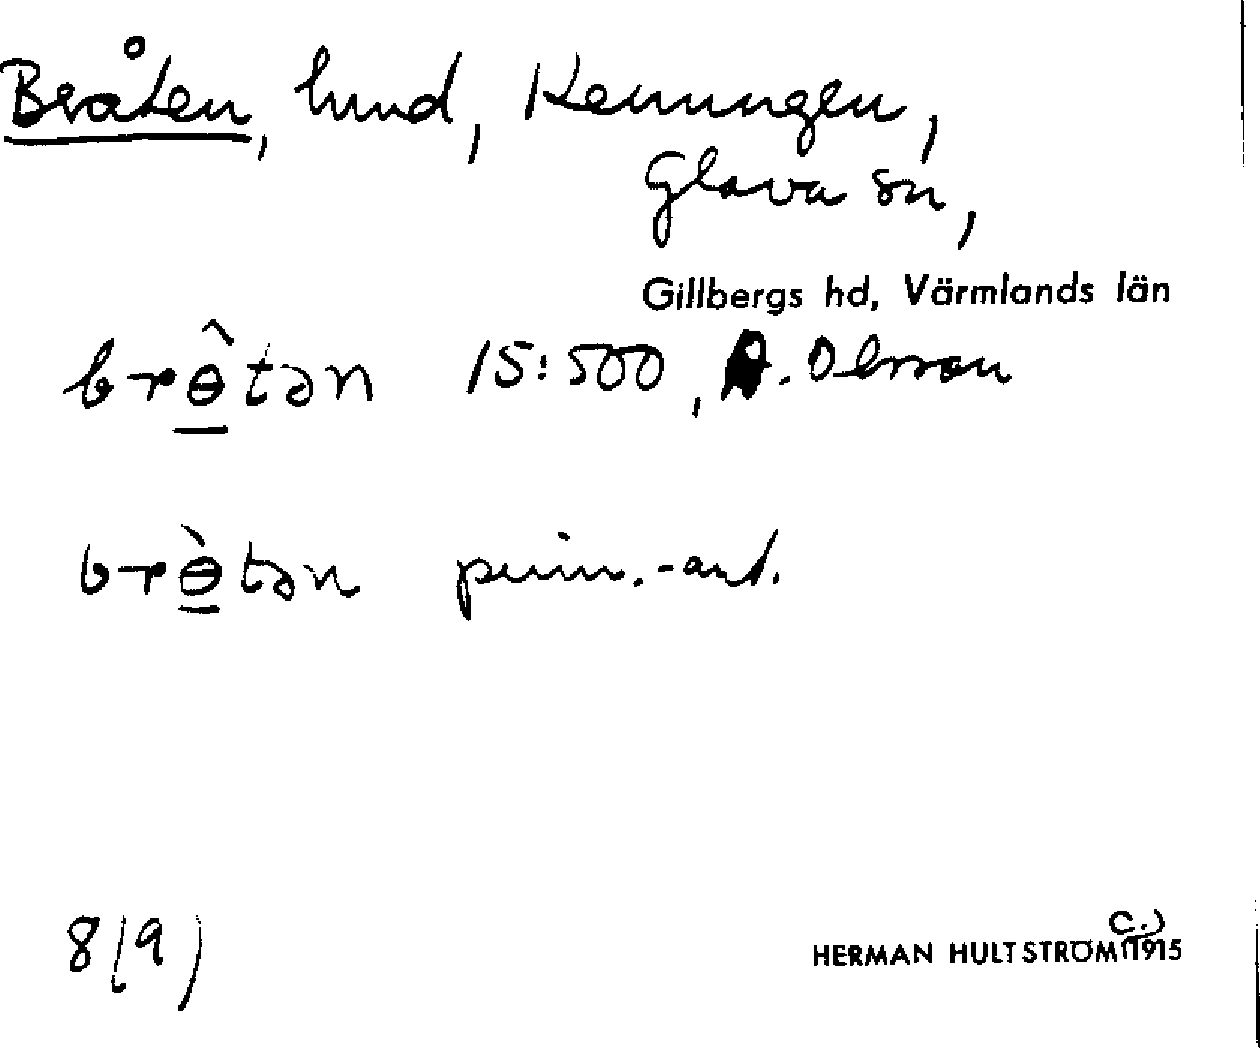 Bråten, hmd, Kenungen,
Glava sn,
Gillbergs hd, Värmlands län
brɵ̂tən 15:500, A. Olsson
brɵ̀tən prim.-ant.
8(9)
C.)
HERMAN HULTSTRÖM (1915